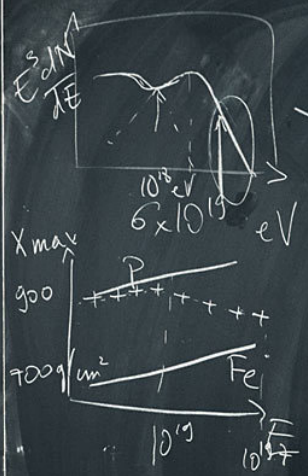 E³ dN
dE
10¹⁸ eV
6 × 10¹⁹
eV
Xmax
P
900
700 g/cm²
Fe
10¹⁹
E